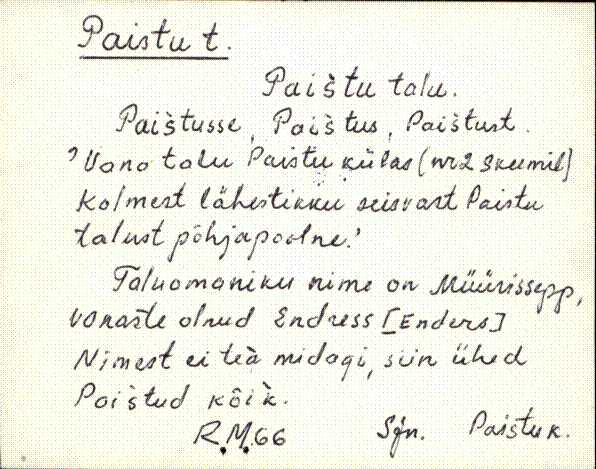 Paistu t.
Paìštu talu.
Paìštusse, Paìštus, Paìštust.
'Vana talu Paistu külas (nr 2 skeemil)
kolmest lähestikku seisvast Paistu
talust põhjapoolne.'
Taluomaniku nime on Müürissepp,
vanaste olnud Endress [Enders]
Nimest ei teà midagi, siin ühed
Paištud kõìk.
R.M. 66 Sjn. Paistu k.